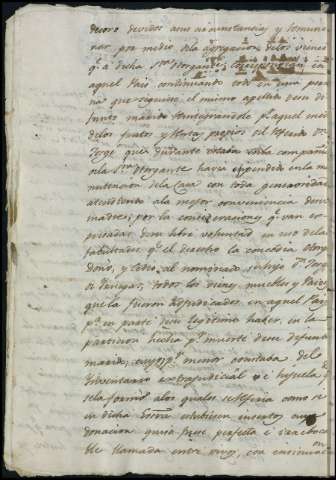 decoro devidos a sus circunstancias, y remune
rar por medio de la agregacion de los vienes
qe. a dicha Sra. otorgante correspondian en
aquel Pais continuando todo en una perso
na que siguiese el mismo apellido de su di
funto marido reintegrandole pr. aquel medio
de los frutos y rentas propios del referido Dn.
Jorge que durante estaba en la compañia
de la Sra. otorgante havia expendido en la ma
nutencion de la Casa con toda generosidad
atendiendo a la mejor conveniencia de su
madre; por la consideracion y qe. van ex
presadas de su libre voluntad en uso de las
facultades qe. el derecho la concedia otor
donó, y cedio al nominado su hijo Dn. Jorge
todos los vienes, muebles y Raices
que la fueron adjudicados en aquel Pays
pr. en parte de su legitimo haver, en la
particion hecha pr. muerte de su difunto
marido, cuyo por menor constaba del
Inventario extrajudicial qe. é hijuela de
se la formó a los quales se referia como si
en dicha Escra. estubiesen insertos cuya
donacion quiso fuese perfecta é irrevoca
ble llamada entre vivos, con insinuacion